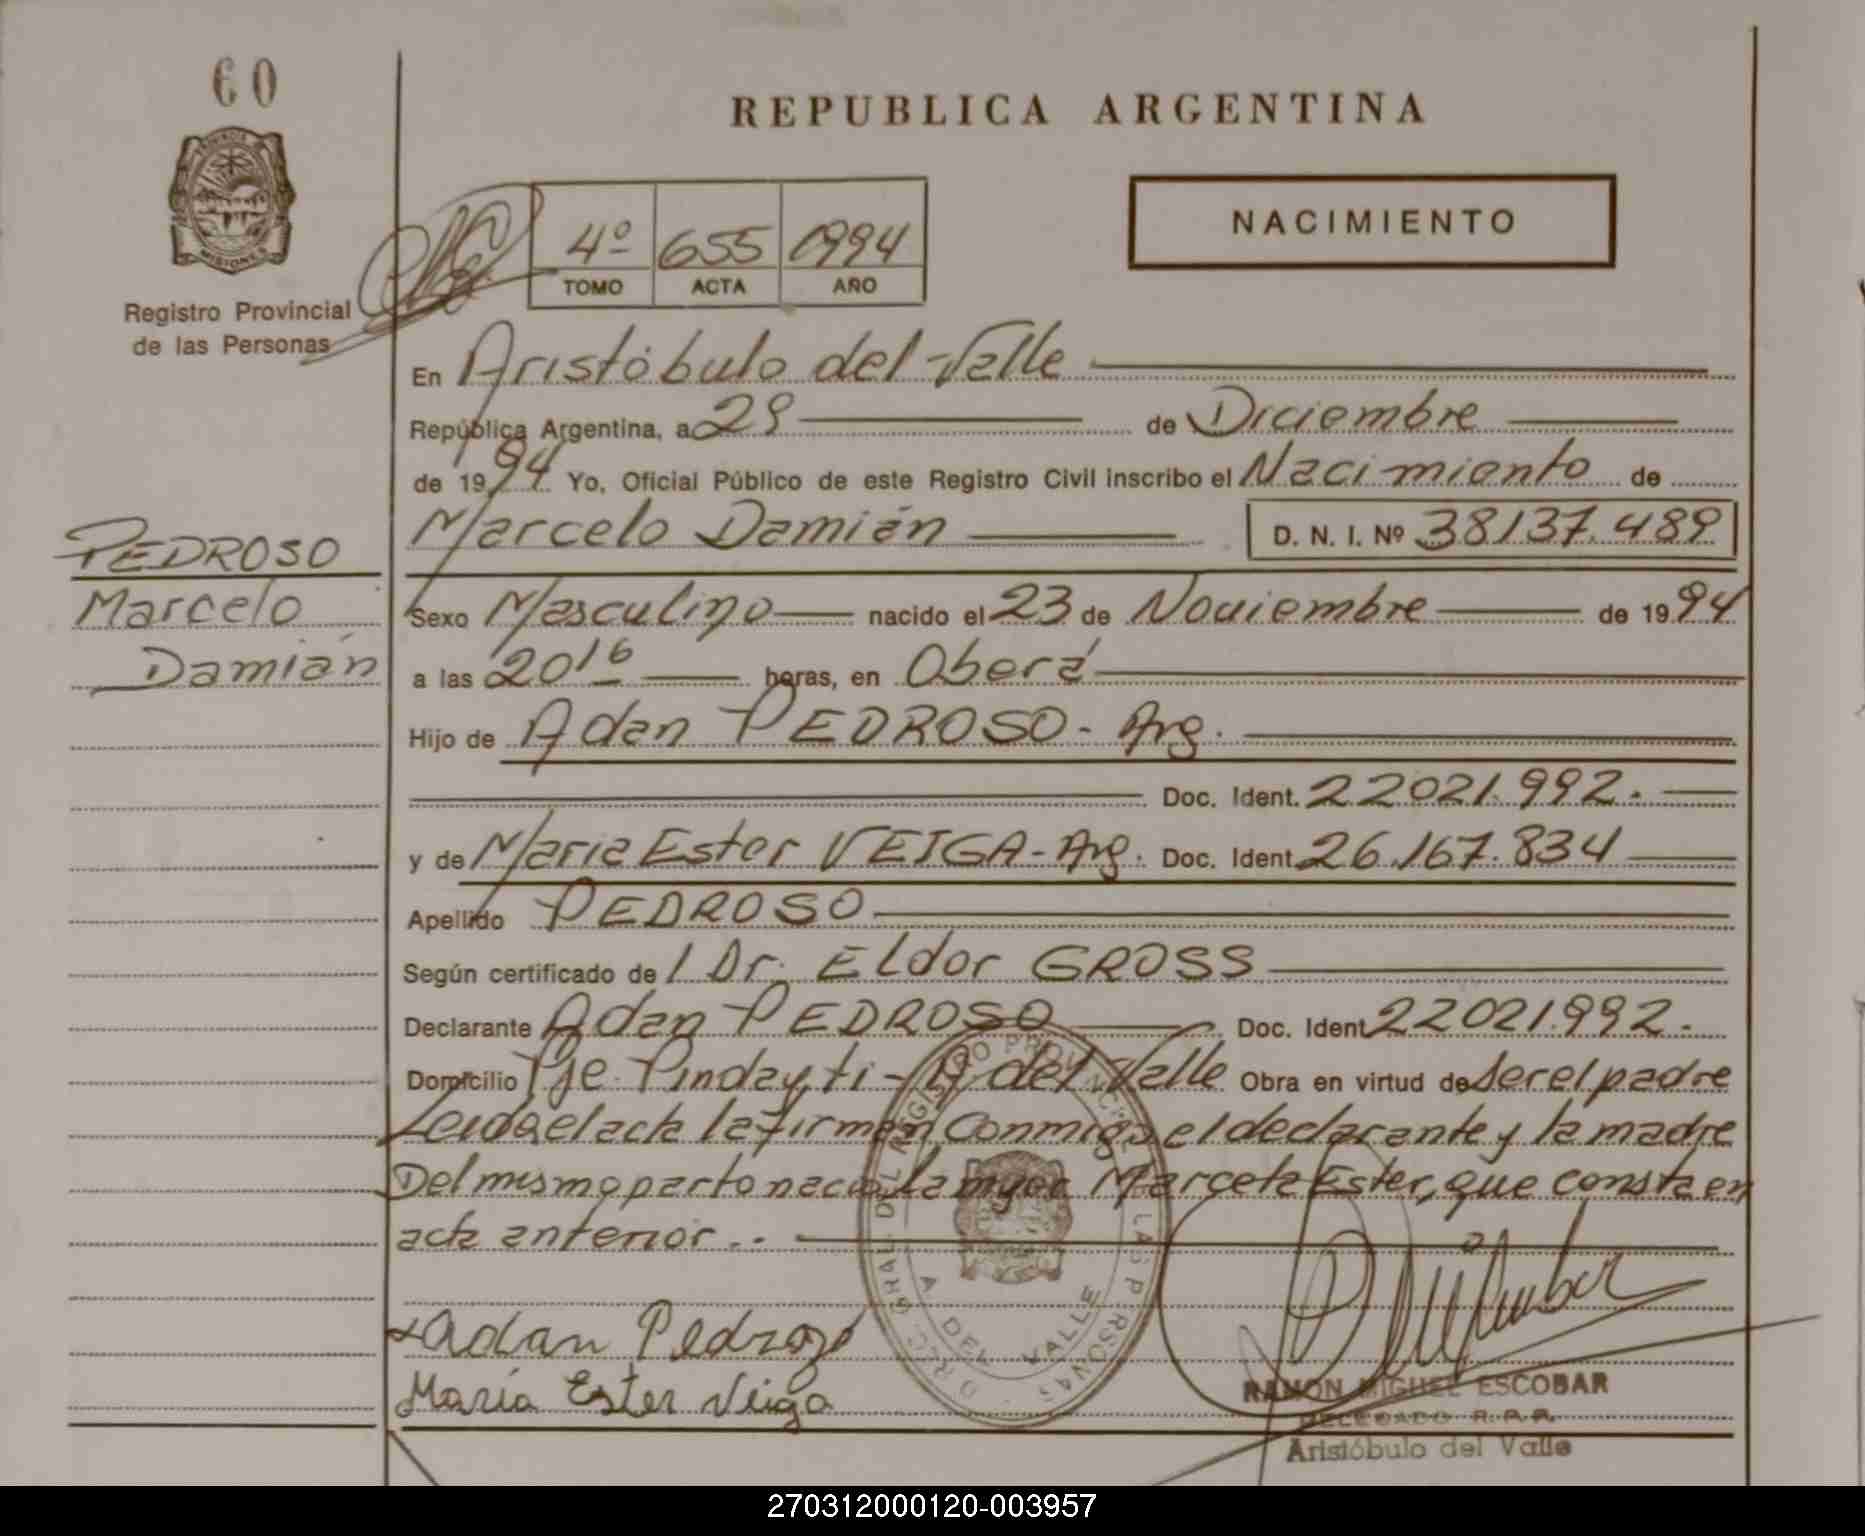 60
PROVINCIA
MISIONES
Registro Provincial
de las Personas
REPUBLICA ARGENTINA
4º 655 1994
TOMO ACTA AÑO
NACIMIENTO
En Aristóbulo del Valle
República Argentina, a 29 de Diciembre
de 1994 Yo, Oficial Público de este Registro Civil inscribo el Nacimiento de
Marcelo Damián D. N. I. Nº 38137.489
PEDROSO
Marcelo
Damián
Sexo Masculino nacido el 23 de Noviembre de 1994
a las 20 16 horas, en Oberá
Hijo de Adan PEDROSO - Arg.
Doc. Ident. 22021.992.
y de Maria Ester VEIGA - Arg. Doc. Ident. 26.167.834
Apellido PEDROSO
Según certificado de 1 Dr. Eldor GROSS
Declarante Adan PEDROSO Doc. Ident 22021.992.
Domicilio Pje. Pindayti - A del Valle Obra en virtud de ser el padre
Leida el acta la firman Conmigo el declarante y la madre
Del mismo parto nacio la mujer Marcela Ester, que consta en
acta anterior..
Adan Pedrozo
María Ester Veiga
A DEL VALLE
RAMON MIGUEL ESCOBAR
DELEGADO R.P.P.
Aristóbulo del Valle
270312000120-003957